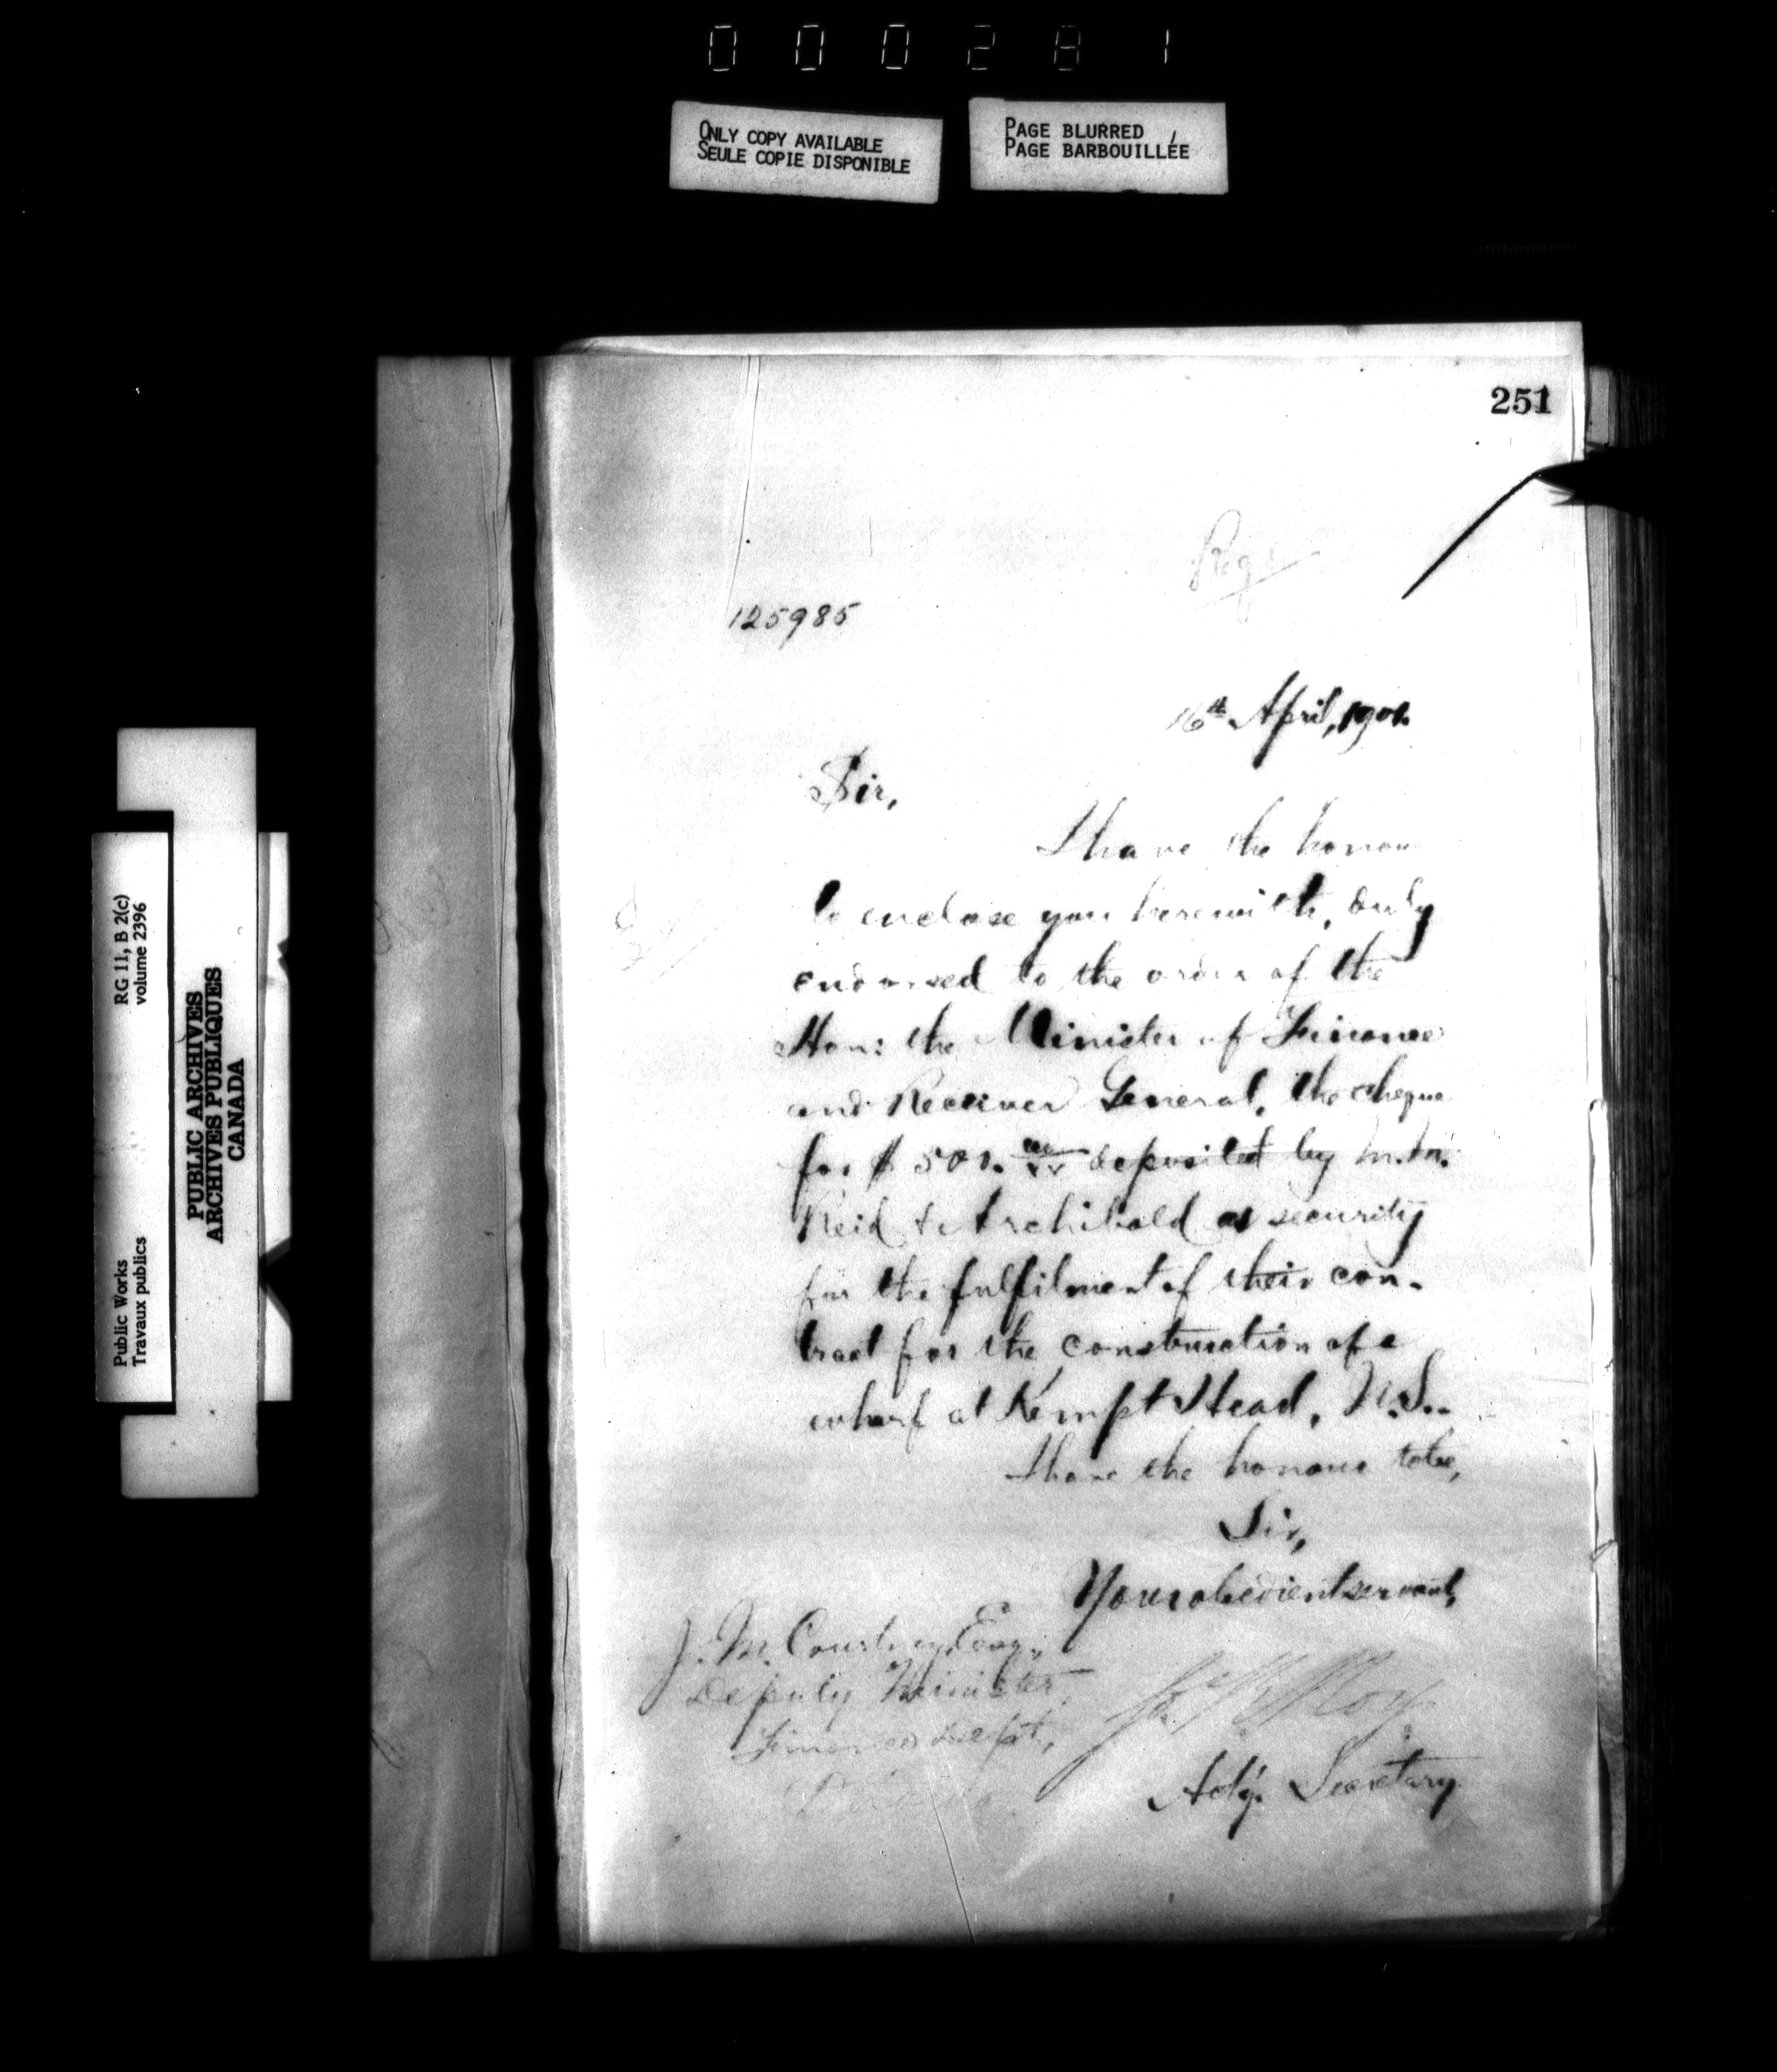 000281
ONLY COPY AVAILABLE
SEULE COPIE DISPONIBLE
PAGE BLURRED
PAGE BARBOUILLÉE
RG 11, B 2(c)
volume 2396
PUBLIC ARCHIVES
ARCHIVES PUBLIQUES
CANADA
Public Works
Travaux publics
251
Reg.
125985
16th April, 1901.
Sir,
I have the honour
to enclose you herewith, duly
endorsed to the order of the
Hon: the Minister of Finance
and Receiver General, the cheque
for $ deposited by
Reid & Archibald as security
for the fulfilment of their con-
tract for the construction of a
wharf at Kempt Head, N.S..
I have the honour to be,
Sir,
Your obedient servant,
J. M. Courtney, Esq.,
Deputy Minister,
Finance Dept,
Roy
Actg. Secretary